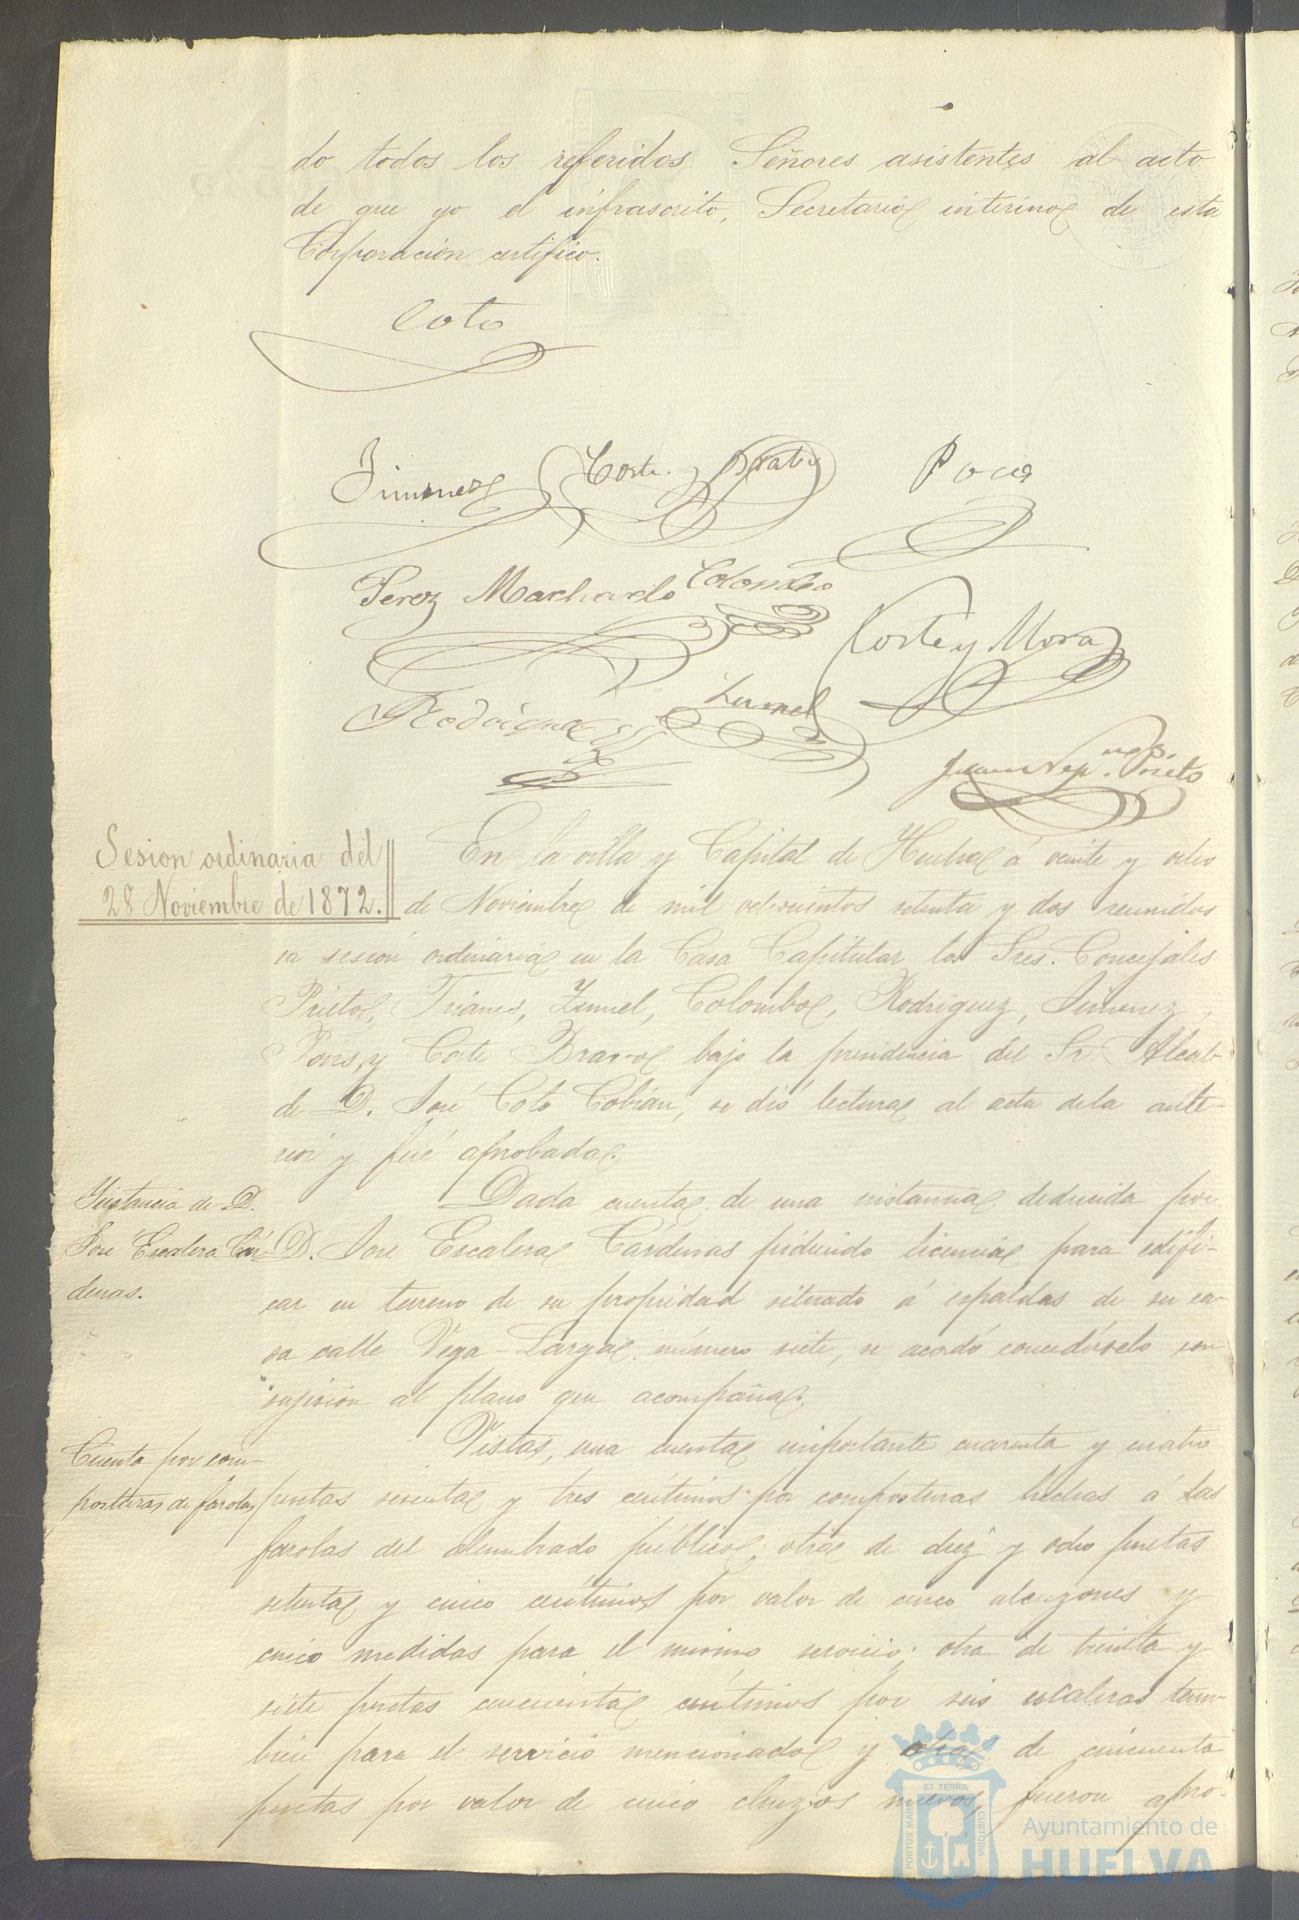 do todos los referidos Señores asistentes al acto
de que yo el infrascrito, Secretario interino de esta
Corporación certifico.
Coto
Jimenez Corte Poces
Perez Machado Colombo
Corte y Mora
Rodriguez Zunel
Juan Nep.no Prieto
Sesion ordinaria del
28 Noviembre de 1872.
En la villa y Capital de Huelva á veinte y ocho
de Noviembre de mil ochocientos setenta y dos reunidos
en sesion ordinaria en la Casa Capitular los Sres. Concejales
Prieto, Trianes, Zunel, Colombo, Rodriguez, Jimenez,
Pons, y Corte Bravo bajo la presidencia del Sr. Alcal-
de D. José Coto Cobian, se dió lectura al acta dela ante-
rior y fué aprobada.
Instancia de D.
José Escalera Cár-
denas.
Dada cuenta de una instancia deducida por
D. José Escalera Cárdenas pidiendo licencia para edifi-
car en terreno de su propiedad situado á espaldas de su ca-
sa calle Vega-Larga número siete, se acordó concedérselo con
sujecion al plano que acompaña.
Cuenta por com-
posturas de farolas
Vistas, una cuenta importante cuarenta y cuatro
pesetas sesenta y tres centimos por composturas hechas á las
farolas del alumbrado público; otra de diez y ocho pesetas
setenta y cinco centimos por valor de cinco alcuzones y
cinco medidas para el mismo servicio; otra de treinta y
siete pesetas cincuenta centimos por seis escaleras tam-
bien para el servicio mencionado y otra de cincuenta
pesetas por valor de cinco chuzos nuevos, fueron apro-
ET TERRÆ
PORTUS MARIS
CUSTODIA
Ayuntamiento de
HUELVA